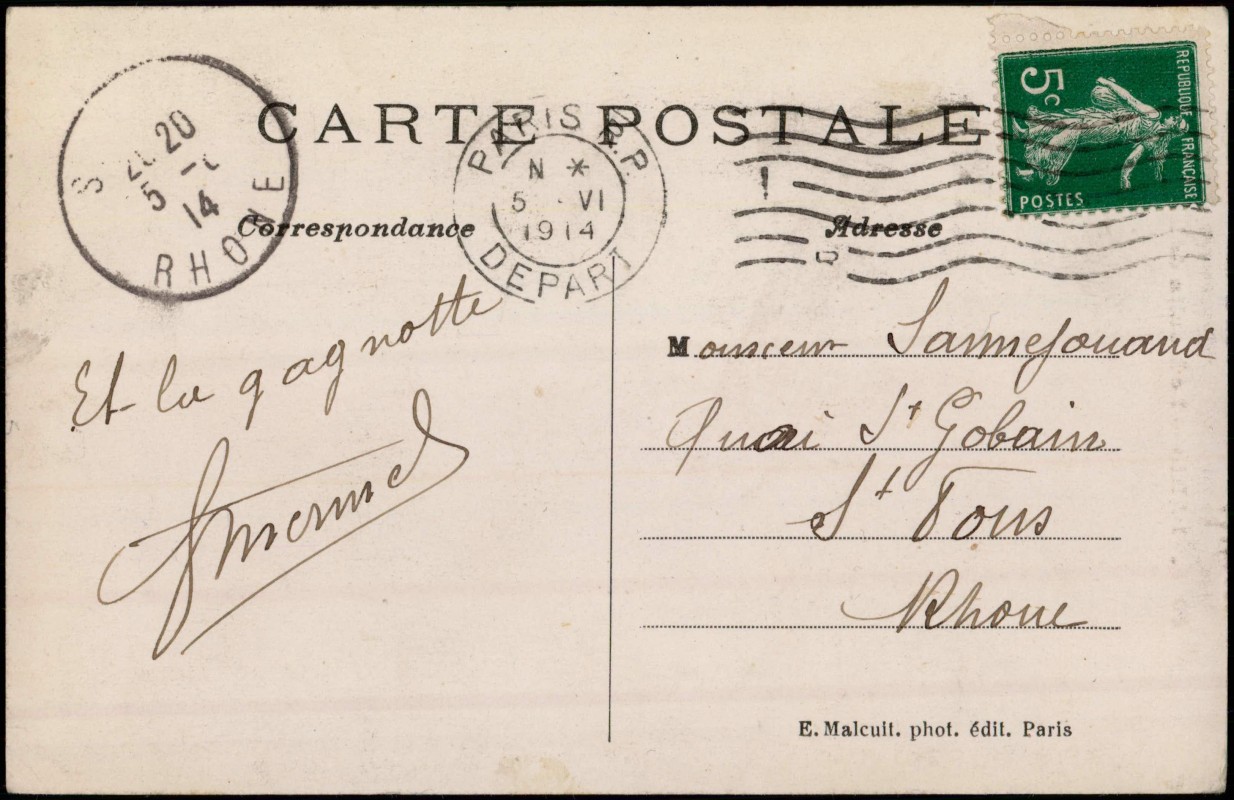 CARTE POSTALE
RÉPUBLIQUE FRANÇAISE
5c
POSTES
20
5
14
RHONE
PARIS R.P.
N *
5 VI
1914
DEPART
Correspondance
Adresse
Et la qagnotte
Monsieur
Quai St Gobain
St Fons
Rhone
E. Malcuit. phot. édit. Paris